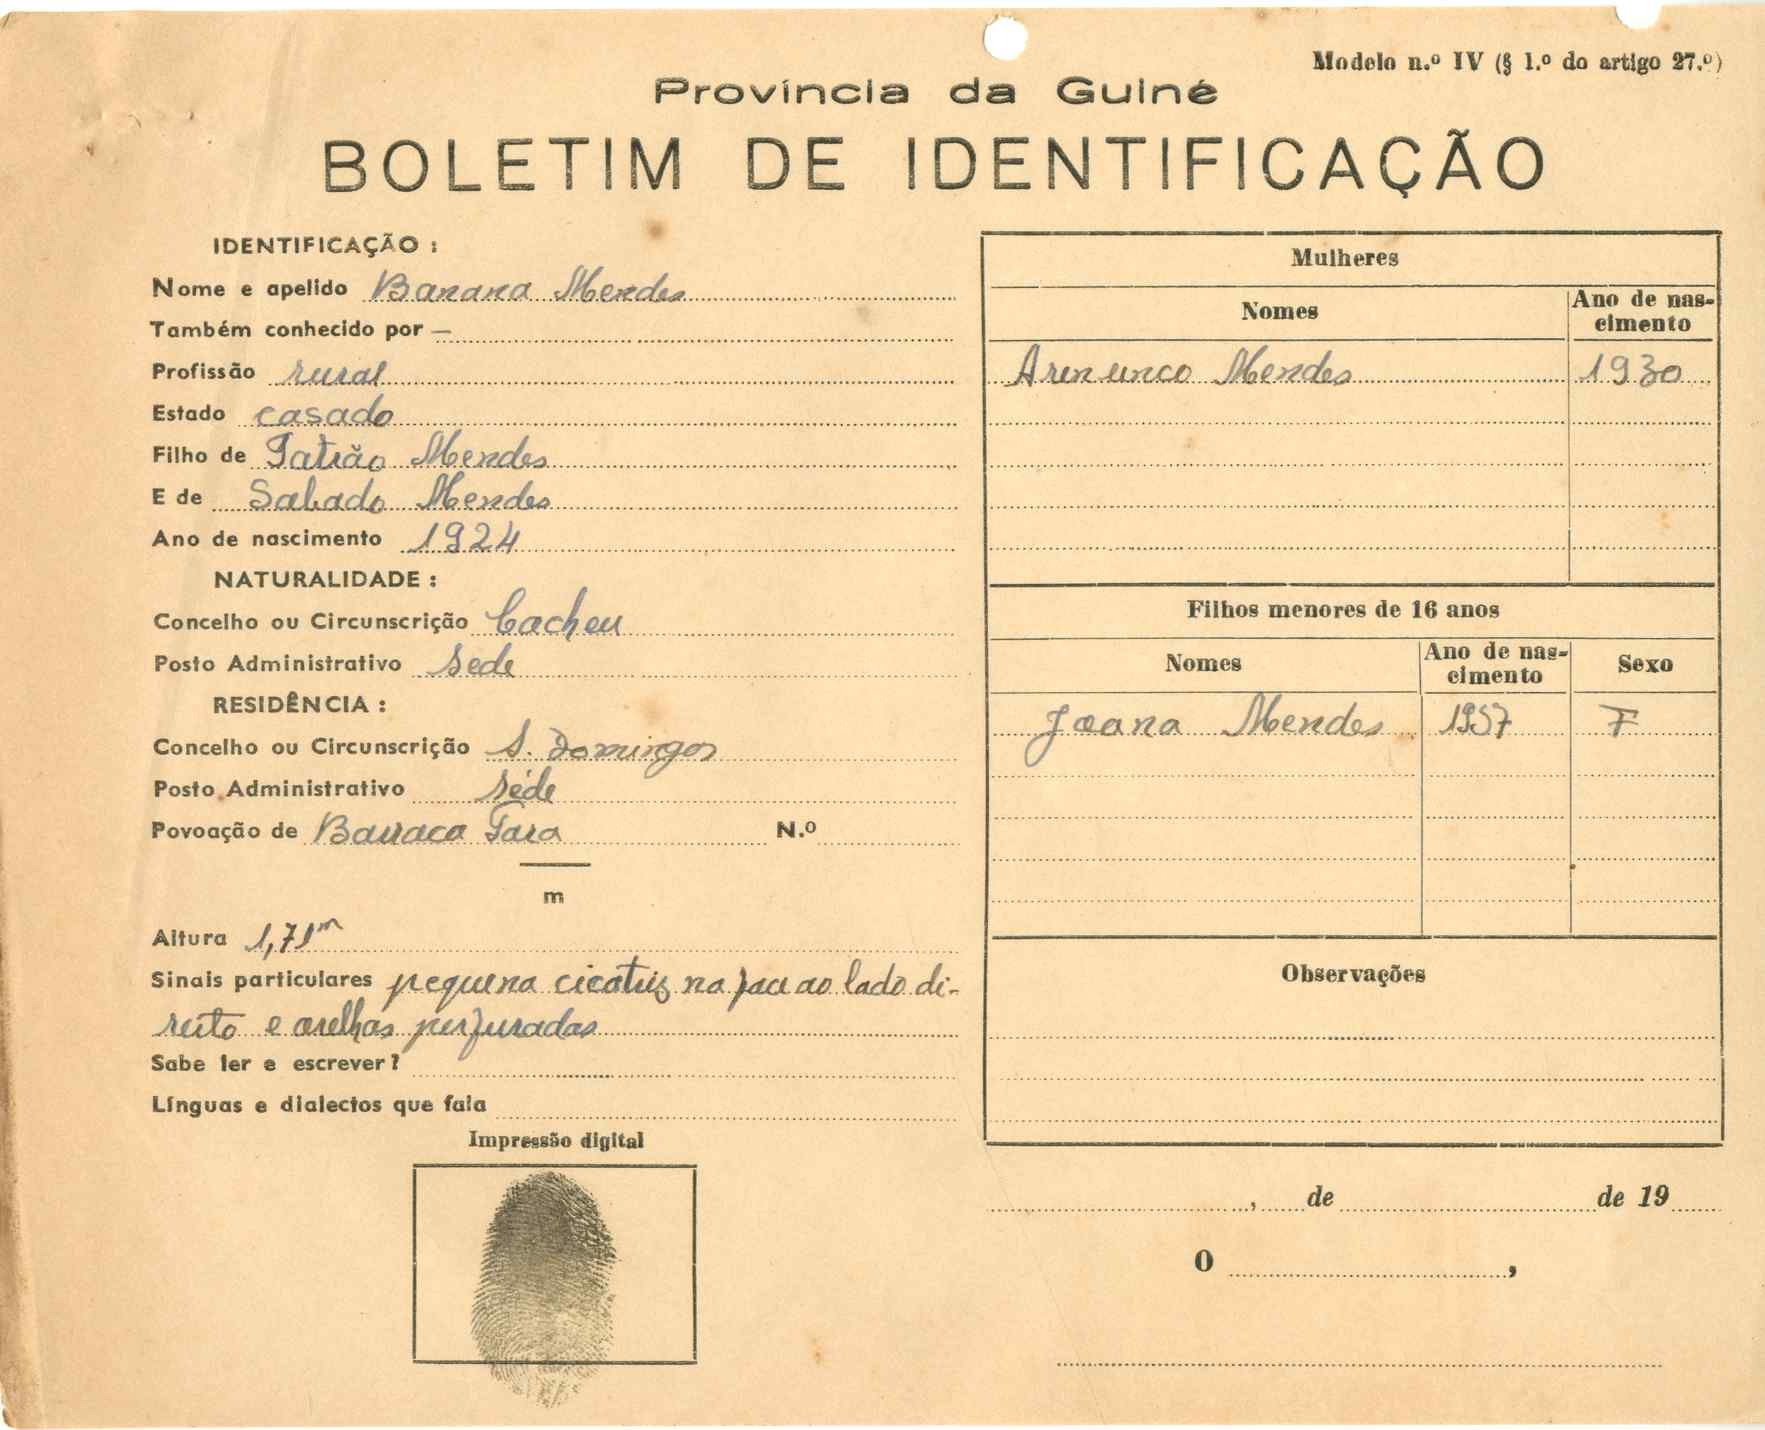 Modelo n.º IV (§ 1.º do artigo 27.º)
Província da Guiné
BOLETIM DE IDENTIFICAÇÃO
IDENTIFICAÇÃO :
Nome e apelido Banana Mendes
Também conhecido por —
Profissão rural
Estado casado
Filho de Patrão Mendes
E de Sabado Mendes
Ano de nascimento 1924
NATURALIDADE :
Concelho ou Circunscrição Cacheu
Posto Administrativo Sede
RESIDÊNCIA :
Concelho ou Circunscrição S. Domingos
Posto Administrativo Séde
Povoação de Barraca N.º
m
Altura 1,71m
Sinais particulares pequena cicatriz na face ao lado di-
reito e orelhas perfuradas
Sabe ler e escrever?
Línguas e dialectos que fala
Impressão digital
Mulheres
Nomes
Ano de nas-
cimento
Mendes 1930
Filhos menores de 16 anos
Nomes
Ano de nas-
cimento
Sexo
Joana Mendes 1957 F
Observações
, de de 19
O ,